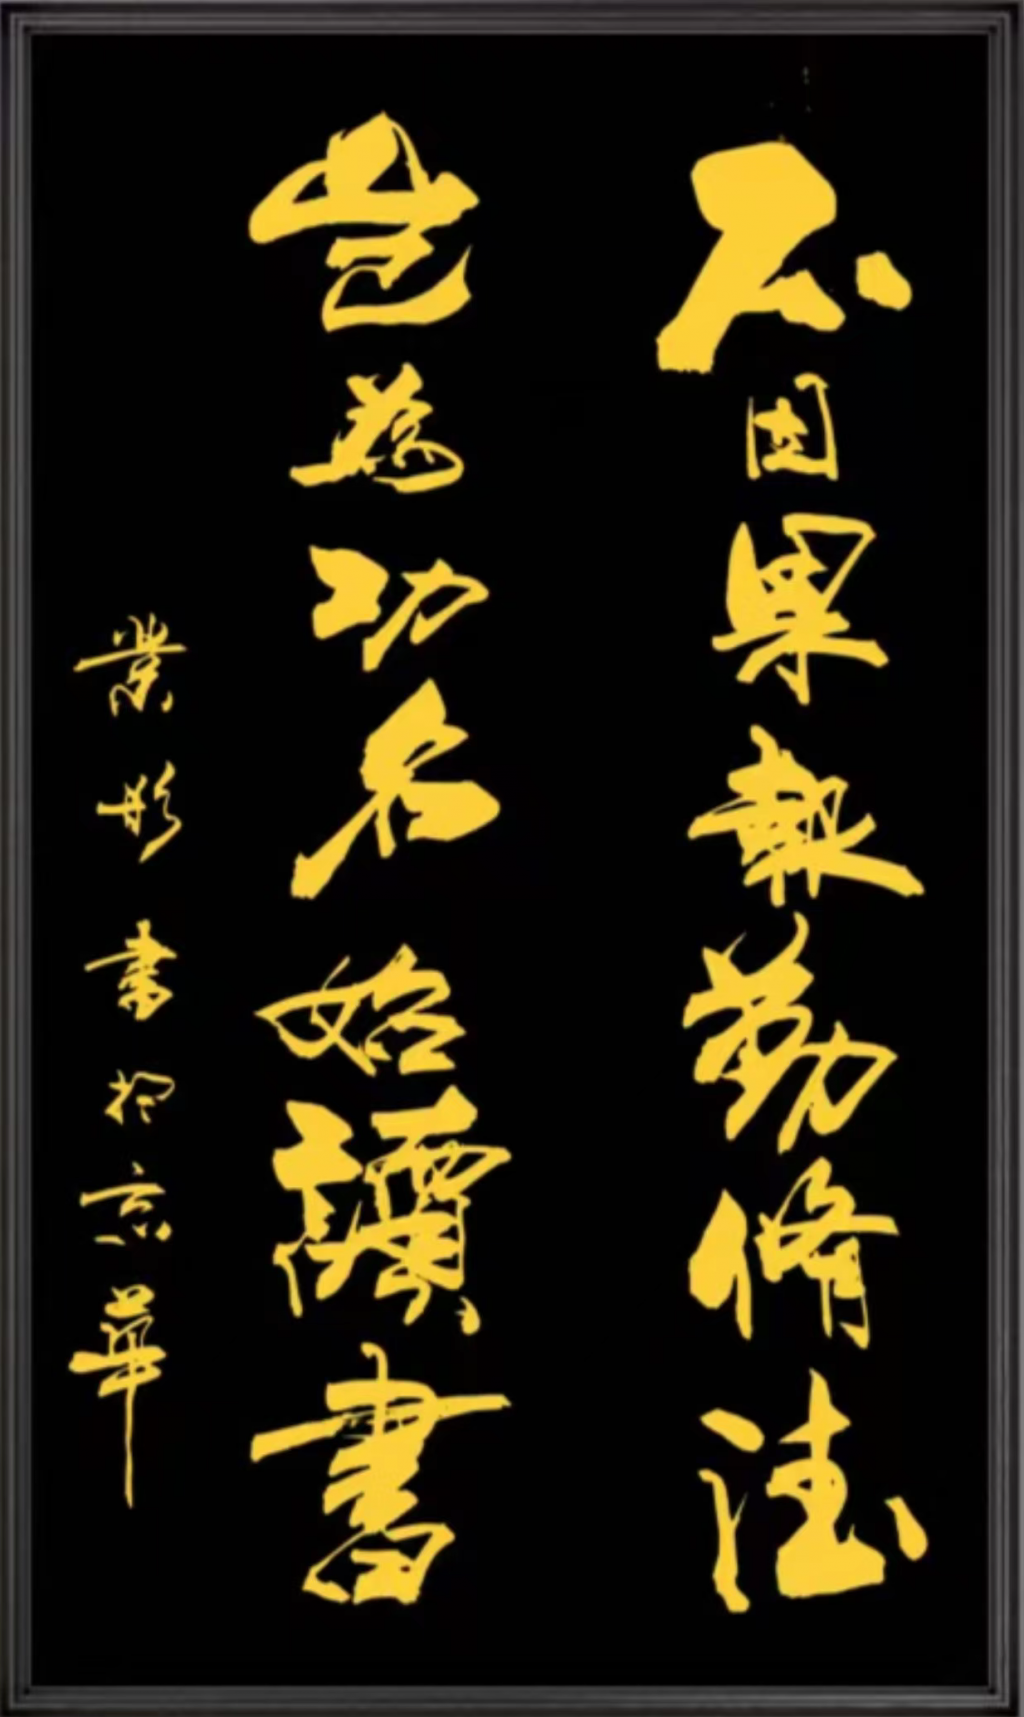 不因果報勤修法
豈為功名始讀書
業彤書於京華